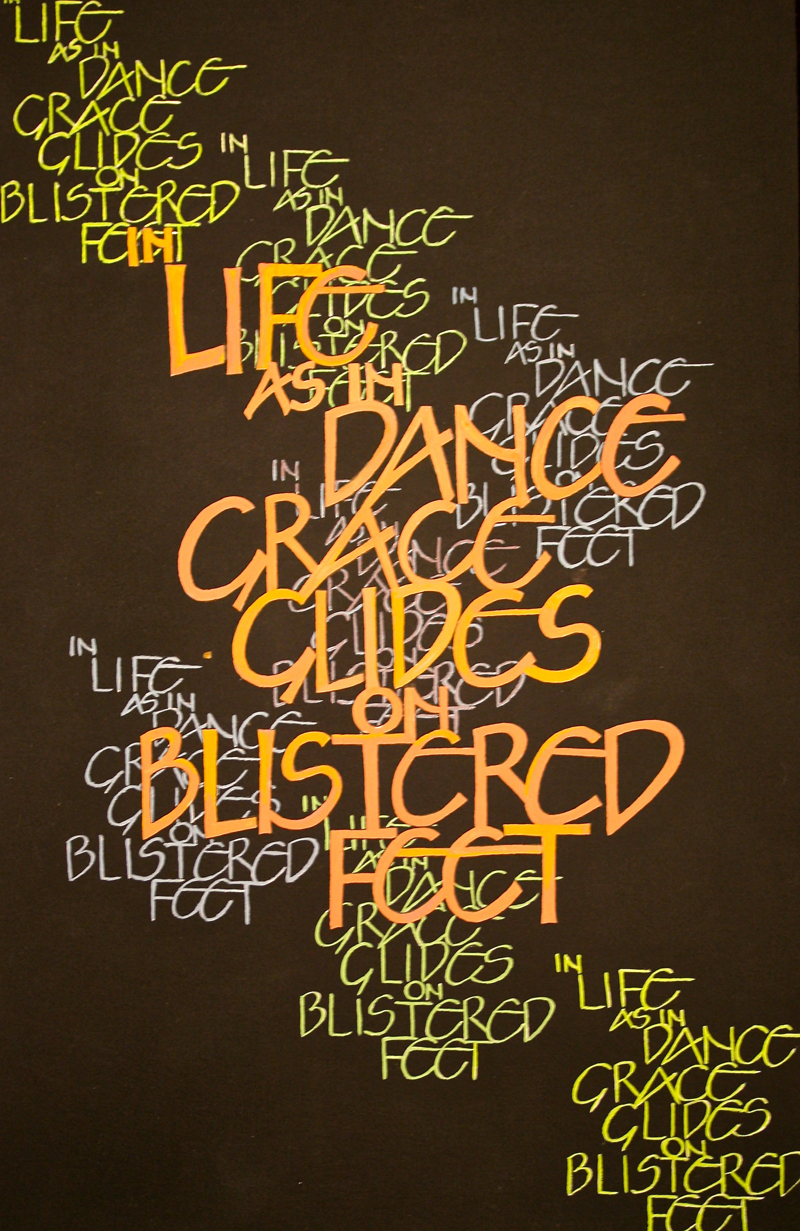 IN
LIFE
AS IN
DANCE
GRACE
GLIDES
ON
BLISTERED
FEET
IN
LIFE
AS IN
DANCE
GRACE
GLIDES
ON
BLISTERED
FEET
IN
LIFE
AS IN
DANCE
GRACE
GLIDES
ON
BLISTERED
FEET
IN
LIFE
AS IN
DANCE
GRACE
GLIDES
ON
BLISTERED
FEET
IN
LIFE
AS IN
DANCE
GRACE
GLIDES
ON
BLISTERED
FEET
IN
LIFE
AS IN
DANCE
GRACE
GLIDES
ON
BLISTERED
FEET
IN
LIFE
AS IN
DANCE
GRACE
GLIDES
ON
BLISTERED
FEET
IN
LIFE
AS IN
DANCE
GRACE
GLIDES
ON
BLISTERED
FEET